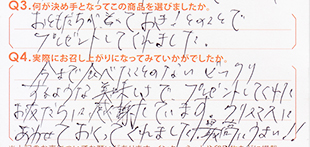 Q3.何が決め手となってこの商品を選びましたか。
おともだちがとっておき！そのことで
プレゼントしてくれました。
Q4.実際にお召し上がりになってみていかがでしたか。
今まで食べたことのない ビックリ
するような美味しさで プレゼントしてくれた
お友だちに 感謝しています。クリスマスに
あわせて おくってくれました!! 最高にうまい!!